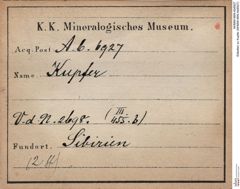 K. K. Mineralogisches Museum.
Acq. Post A. b. 6927
Name. Kupfer
V. d. N. 2698. (III/455. b)
Fundort. Sibirien